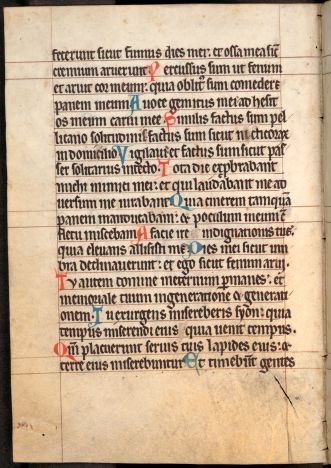 fecerunt sicut fumus dies mei: et ossa mea sicut
cremium aruerunt Percussus sum ut fenum
et aruit cor meum: quia oblitus sum comedere
panem meum A voce gemitus mei adhesit
os meum carni mee Similis factus sum pel
licano solitudinis: factus sum sicut nicticorax
in domicilio Vigilavi et factus sum sicut pas
ser solitarius in tecto Tota die exprobrabant
michi inimici mei: et qui laudabant me ad
versum me iurabant Quia cinerem tamquam
panem manducabam: et poculum meum cum
fletu miscebam A facie ire indignationis tue:
quia elevans allisisti me Dies mei sicut um
bra declinaverunt: et ego sicut fenum arui.
Tu autem domine in eternum permanes: et
memoriale tuum in generatione et generati
onem. Tu exurgens misereberis syon: quia
tempus miserendi eius quia venit tempus.
Quoniam placuerunt servis tuis lapides eius: et
terre eius miserebuntur Et timebunt gentes